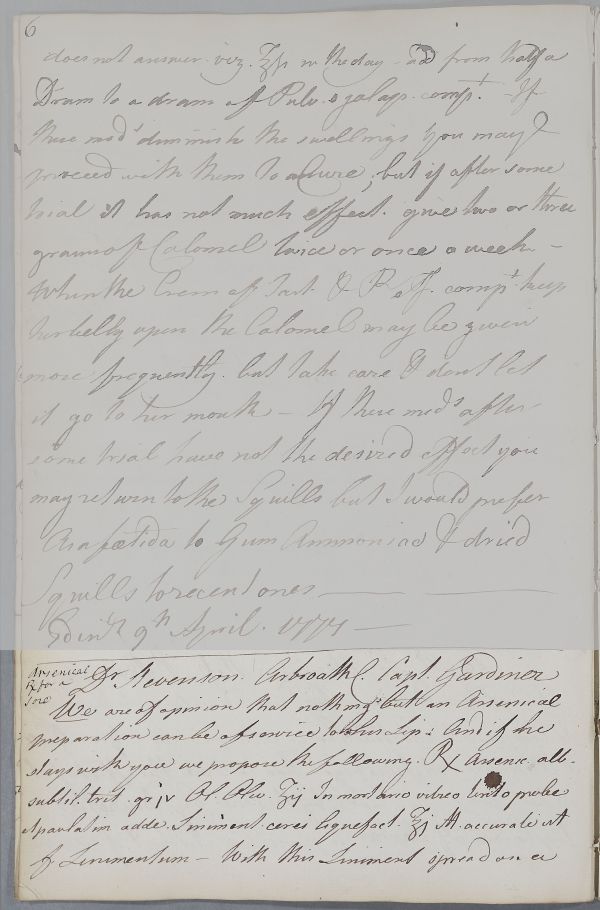 6
does not answer. viz. ʒfs in the day - add from half a
Dram to a dram of Pulv. e jalap. compt. If
these meds diminish the swellings you may
proceed with them to a Cure, but if after some
trial it has not much effect. give two or three
grains of Calomel twice or once a week -
When the Crem of Tart & P. e J. compt. keep
her belly open the Calomel may be given
more frequently. but take care & dont let
it go to her mouth - If these meds after
some trial have not the desired effect you
may return to the Squills but I would prefer
Asafoetida to Gum Ammoniac & dried
Squills to recent ones
Edinr 9th April. 1777 -
Arsenical
℞ for a
Sore
Dr Stevenson. Arbroath. Capt. Gardiner
We are of opinion that nothing but an Arsenical
preparation can be of service to his Lip: And if he
stays with you we propose the following. ℞ Arsenic. alb.
subtil. trit. gr iv Ol Oliv. ʒij In mortario vitreo tinto probe
et paulatim adde. Liniment. cerei liquefact. ʒj M. accurate ut
f Linimentum - With this Liniment spread on a